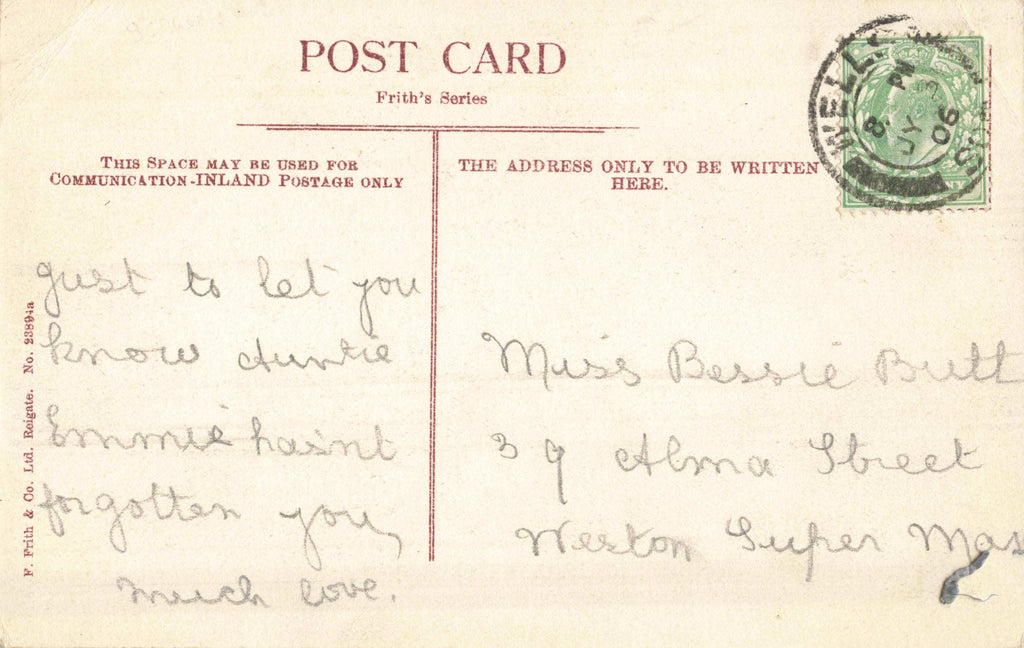 POST CARD
Frith's Series
THIS SPACE MAY BE USED FOR
COMMUNICATION-INLAND POSTAGE ONLY
THE ADDRESS ONLY TO BE WRITTEN
HERE.
WELL
8 PM
JY
06
Just to let you
know Auntie
Emmie hasnt
forgotten you,
much love.
Miss Bessie Butt
39 Alma Street
Weston Super Mas
F. Frith & Co. Ltd. Reigate. No. 23894a